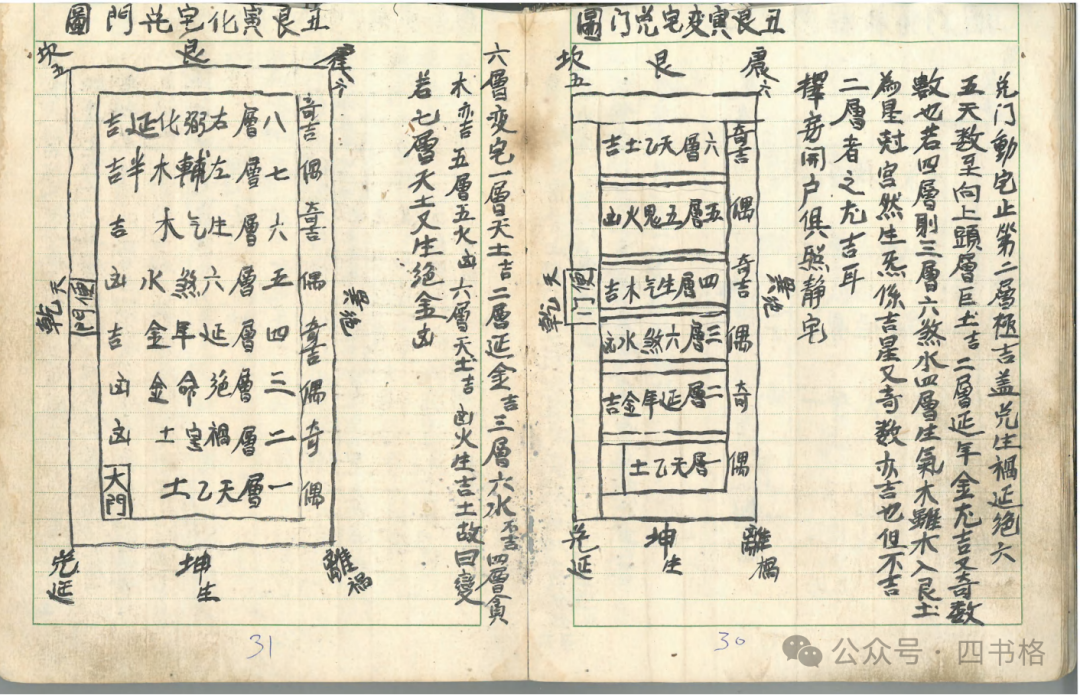 丑艮寅变宅兑门圖
兑门動宅止第二層极吉盖兑生禍延绝六
五天数至向上頭層巨土吉二層延年金尤吉又奇数
數也若四層則三層六煞水四層生氣木雖木入艮土
為星尅宫然生炁係吉星又奇数亦吉也但不吉
二層者之尤吉耳
擇旁開户俱照静宅
坎五
艮
震六
奇吉 六層天乙土吉
偶 五層五鬼火凶
奇吉 四層生气木吉
偶 三層六煞水凶
奇 二層延年金吉
偶 一層天乙土
乾天
便门
巽绝
兑延
坤生
離禍
30
六層变宅一層天土吉二層延金吉三層六水不吉四層貪
木亦吉五層五火凶六層天土吉凶火生吉土故曰變
若七層天土又生绝金凶
丑艮寅化宅兑門圖
坎五
艮
震六
奇吉 八層右弼化延吉
偶 七層左輔木半吉
奇吉 六層生气木吉
偶 五層六煞水凶
奇吉 四層延年金吉
偶 三層绝命金凶
奇 二層禍害土凶
偶 一層天乙土
大門
乾天
便門
巽绝
兑延
坤生
離禍
31
公众号·四书格